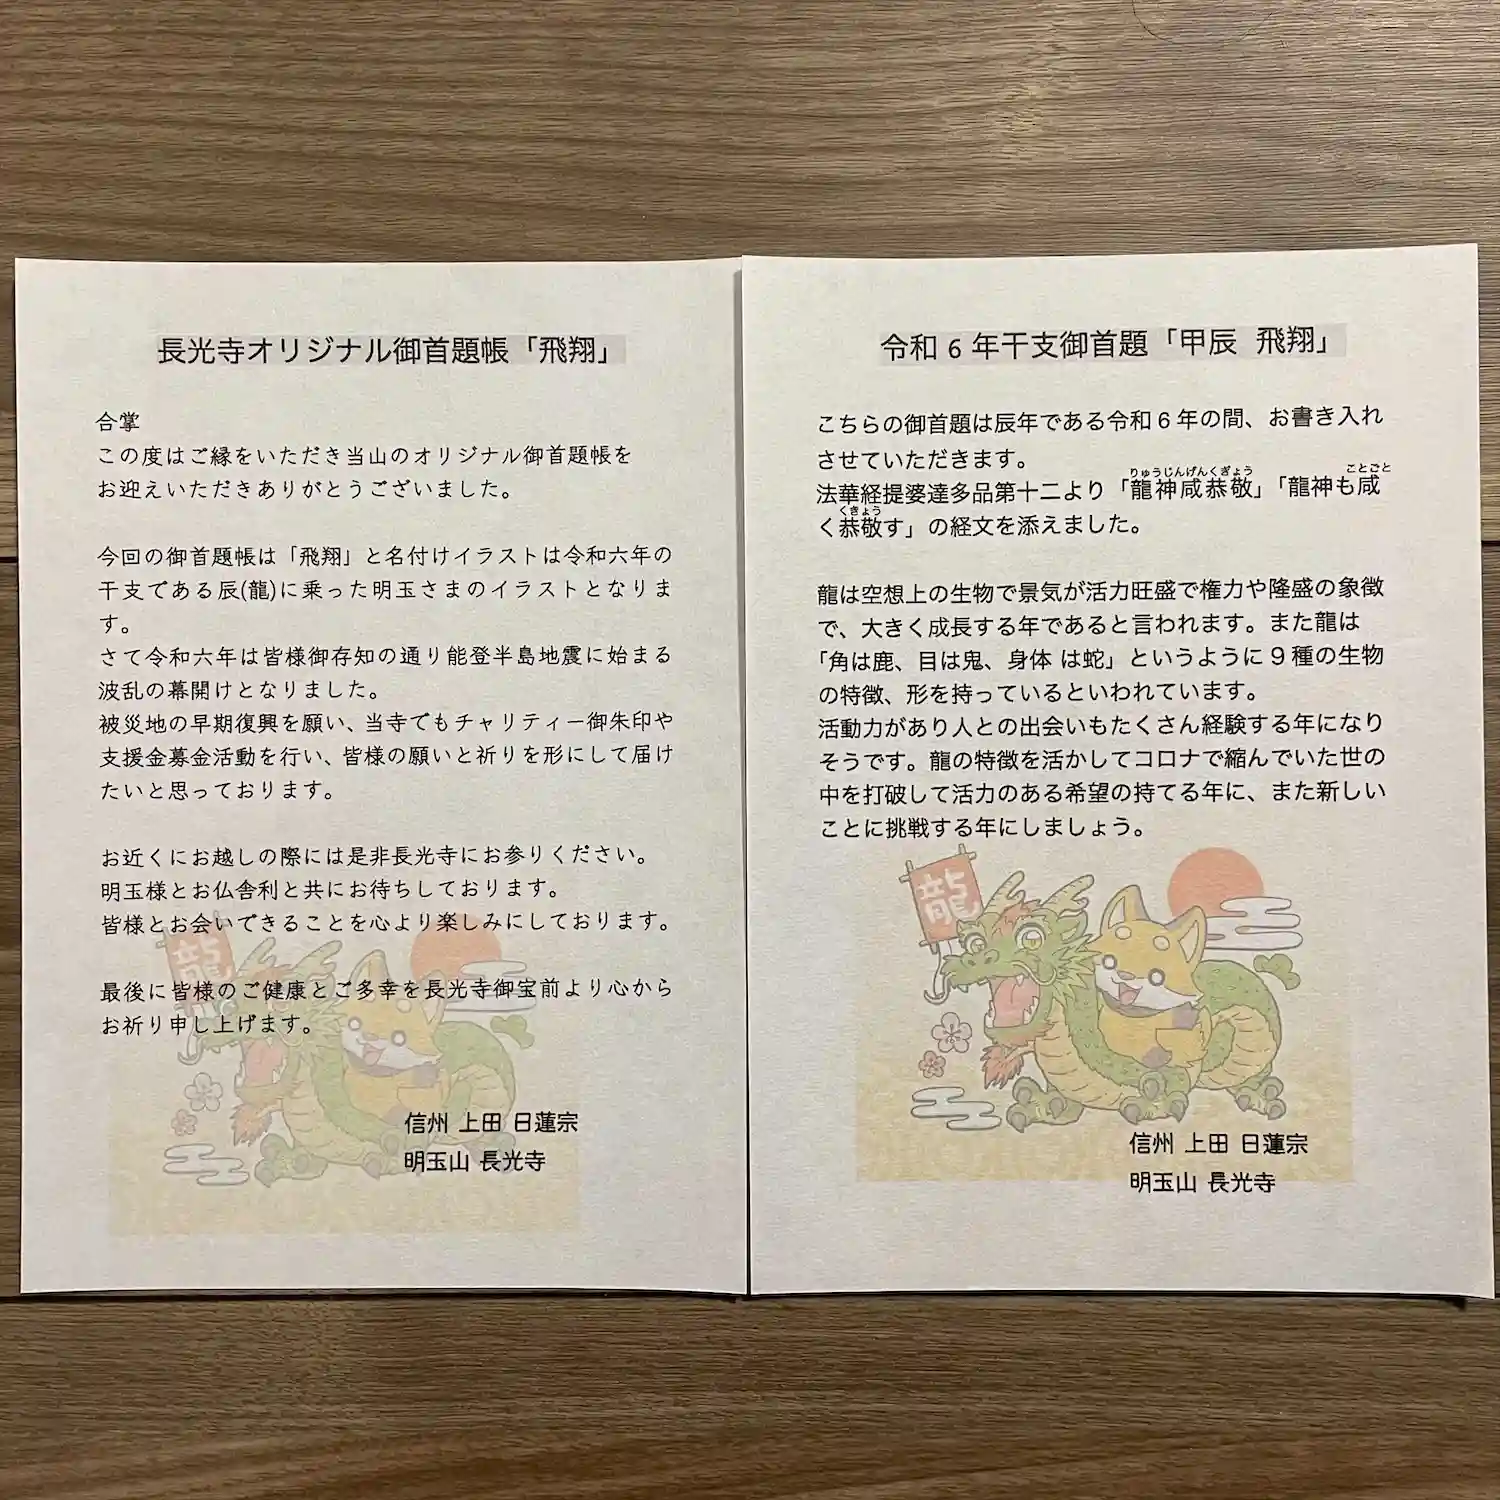 長光寺オリジナル御首題帳「飛翔」
合掌
この度はご縁をいただき当山のオリジナル御首題帳を
お迎えいただきありがとうございました。
今回の御首題帳は「飛翔」と名付けイラストは令和六年の
干支である辰(龍)に乗った明玉さまのイラストとなりま
す。
さて令和六年は皆様御存知の通り能登半島地震に始まる
波乱の幕開けとなりました。
被災地の早期復興を願い、当寺でもチャリティー御朱印や
支援金募金活動を行い、皆様の願いと祈りを形にして届け
たいと思っております。
お近くにお越しの際には是非長光寺にお参りください。
明玉様とお仏舎利と共にお待ちしております。
皆様とお会いできることを心より楽しみにしております。
龍
最後に皆様のご健康とご多幸を長光寺御宝前より心から
お祈り申し上げます。
信州 上田 日蓮宗
明玉山 長光寺
令和6年干支御首題「甲辰 飛翔」
こちらの御首題は辰年である令和6年の間、お書き入れ
させていただきます。
りゅうじんげんくぎょう ことごと
法華経提婆達多品第十二より「龍神咸恭敬」「龍神も咸
くきょう
く恭敬す」の経文を添えました。
龍は空想上の生物で景気が活力旺盛で権力や隆盛の象徴
で、大きく成長する年であると言われます。また龍は
「角は鹿、目は鬼、身体 は蛇」というように9種の生物
の特徴、形を持っているといわれています。
活動力があり人との出会いもたくさん経験する年になり
そうです。龍の特徴を活かしてコロナで縮んでいた世の
中を打破して活力のある希望の持てる年に、また新しい
ことに挑戦する年にしましょう。
龍
信州 上田 日蓮宗
明玉山 長光寺